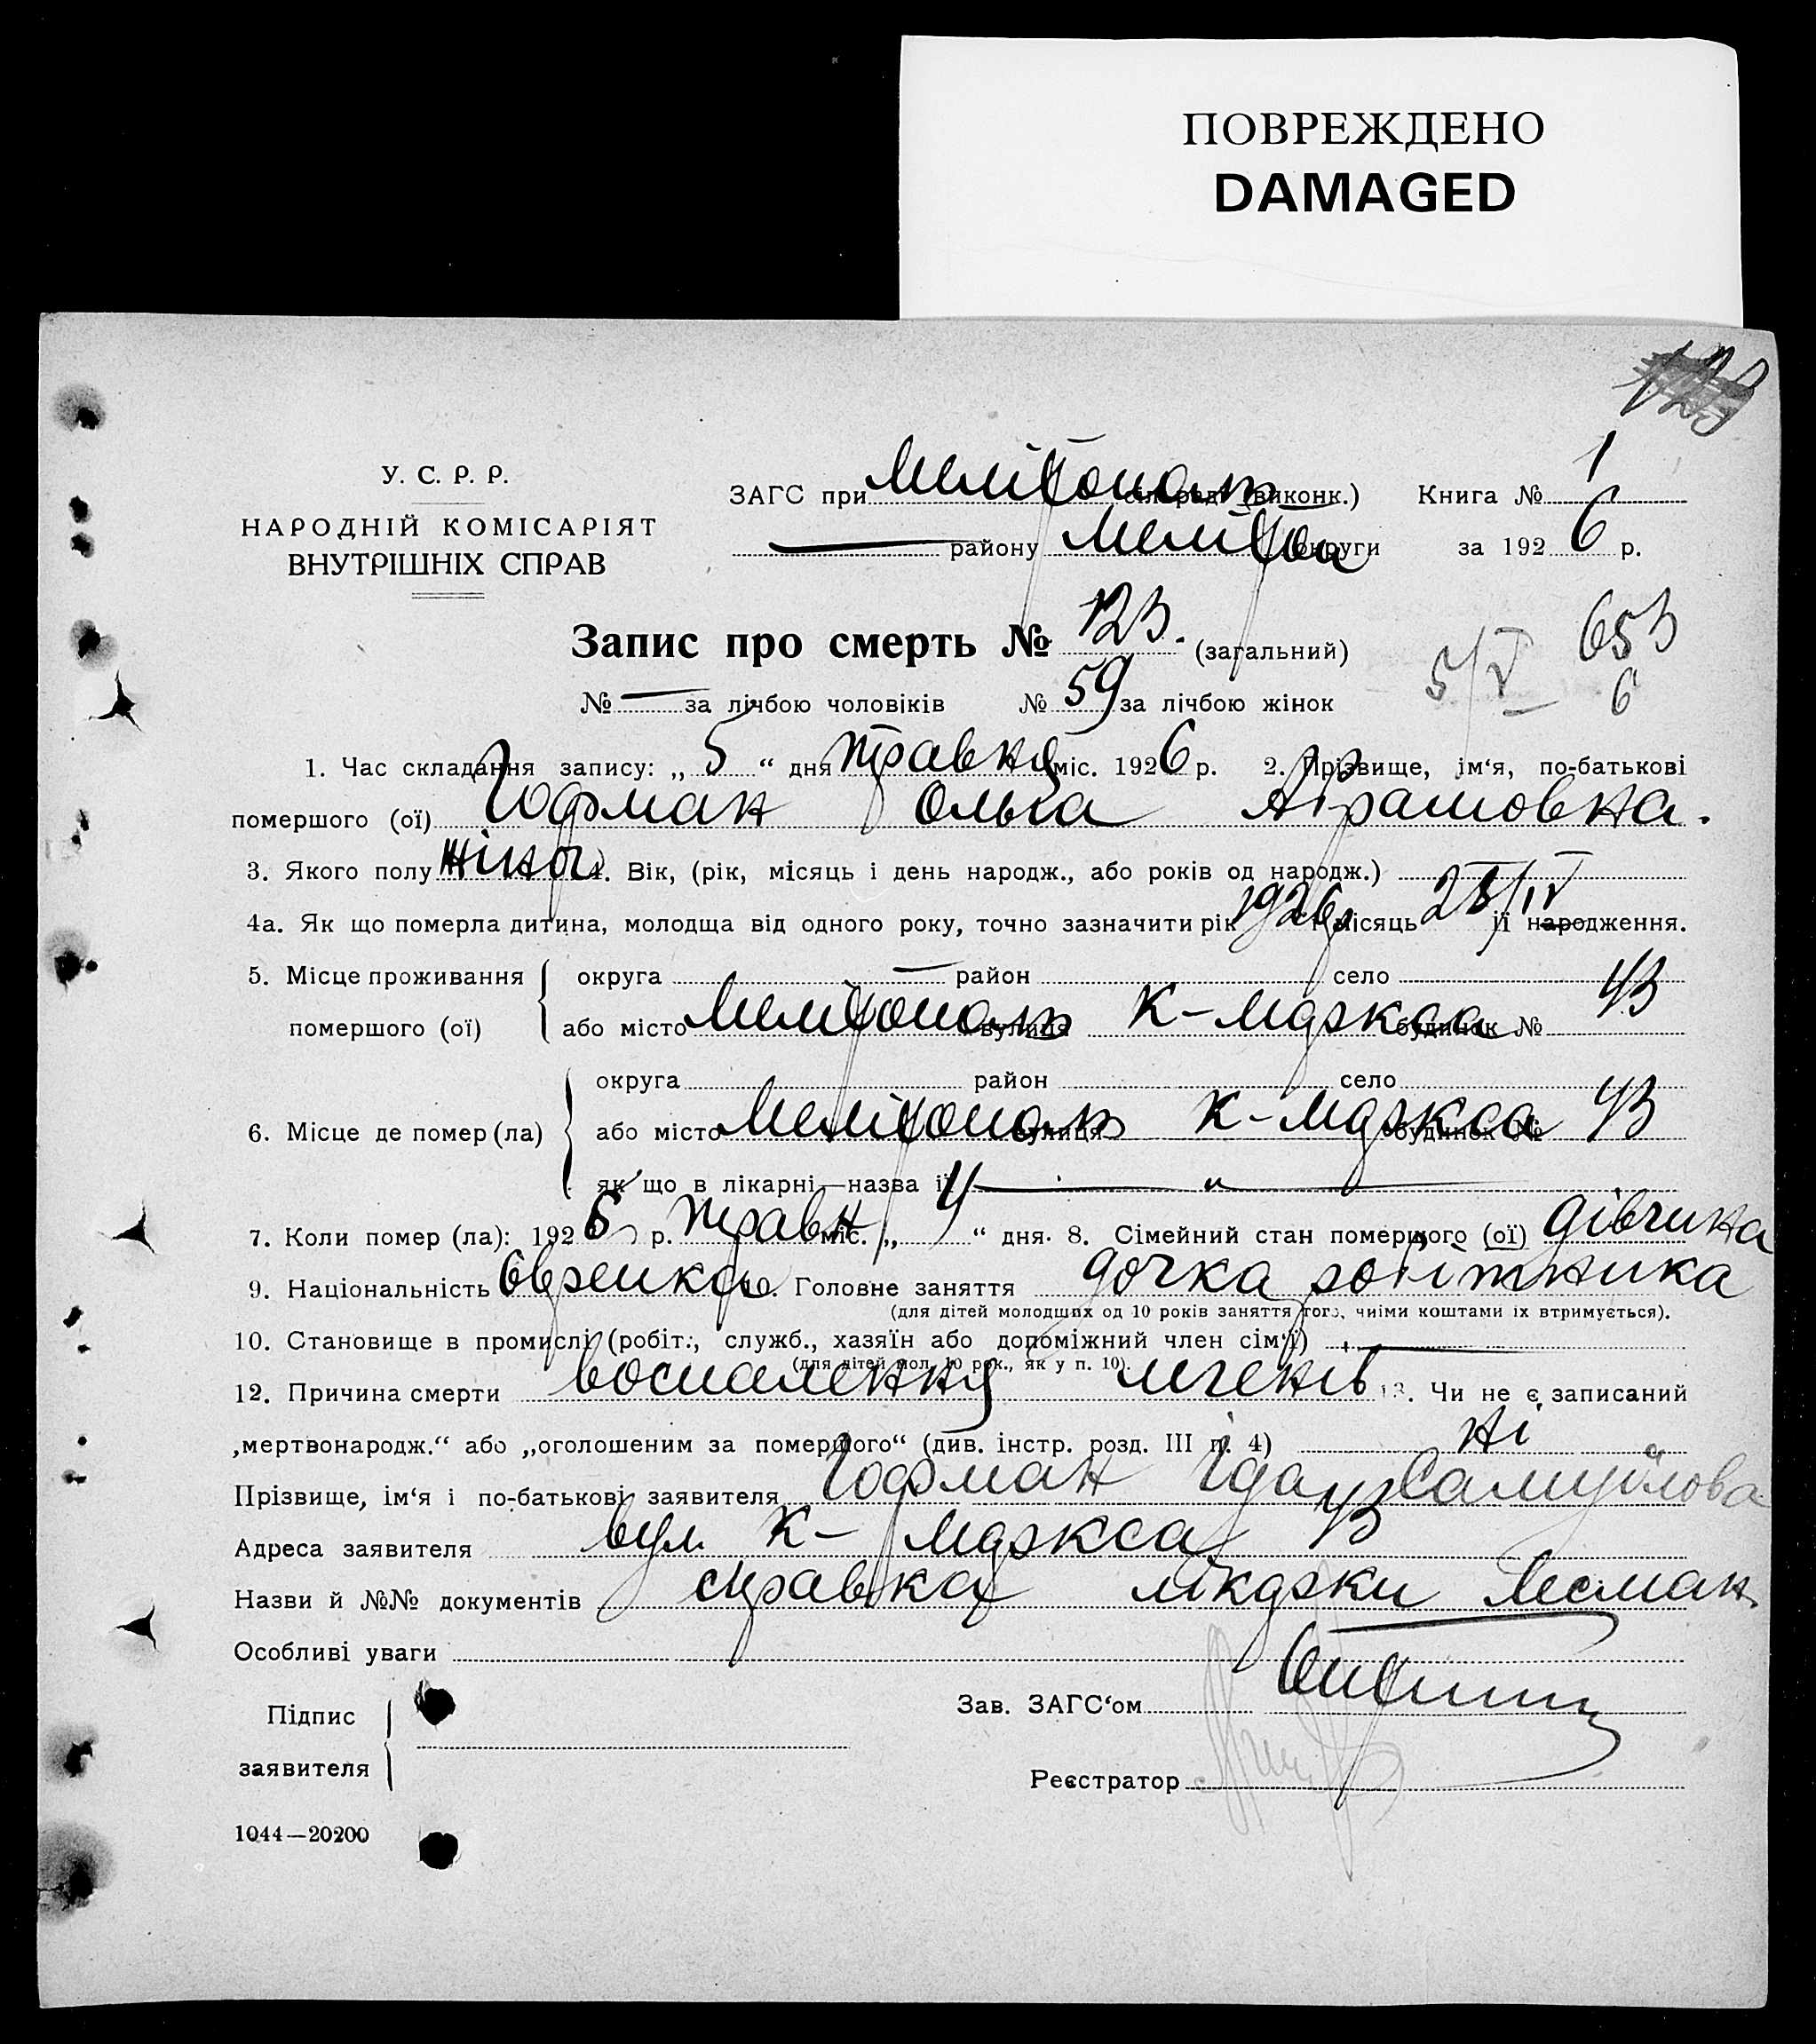 ПОВРЕЖДЕНО
DAMAGED
У. С. Р. Р.
НАРОДНІЙ КОМІСАРІЯТ
ВНУТРІШНІХ СПРАВ
ЗАГС при Мелітопіл сіл.-раді (виконк.) Книга № 1
— району Меліто округи за 192 6 р.
Запис про смерть № 123. (загальний)
5/V 653
6
№ — за лічбою чоловіків № 59 за лічбою жінок
1. Час складання запису: „ 5 “ дня травня міс. 192 6 р. 2. Прізвище, ім‘я, по-батькові
помершого (ої) Гофман Ольга Абрамовна.
3. Якого полу жіноч 4. Вік, (рік, місяць і день народж., або років од народж.)
4а. Як що померла дитина, молодша від одного року, точно зазначити рік 1926 р і місяць /IV її народження.
5. Місце проживання округа — район село
помершого (ої) або місто вулиця К-Маркса будинок № 43
округа район село
6. Місце де помер (ла) або місто вулиця К-Маркса будинок № 43
як що в лікарні—назва її — „ —
7. Коли помер (ла): 192 6 р. травн міс. „ 4 “ дня. 8. Сімейний стан померщого (ої) дівчина
9. Національність Єврейка 10. Головне заняття дочка робітника
(для дітей молодших од 10 років заняття того, чиїми коштами їх втримується).
10. Становище в промислі (робіт., служб., хазяїн або допоміжний член сім‘ї) —
(для дітей мол. 10 рок., як у п. 10).
12. Причина смерти воспалення легенів 13. Чи не є записаний
„мертвонародж.“ або „оголошеним за померщого“ (див. інстр. розд. III п. 4) ні
Прізвище, ім‘я і по-батькові заявителя Гофман Іда Самуйлова
Адреса заявителя вул. К- Маркса 43
Назви й №№ документів справка лікарки Лесман.
Особливі уваги
Підпис
заявителя
Зав. ЗАГС‘ом
Реєстратор
1044—20200